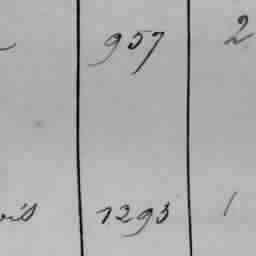 957 2
ois 1293 1